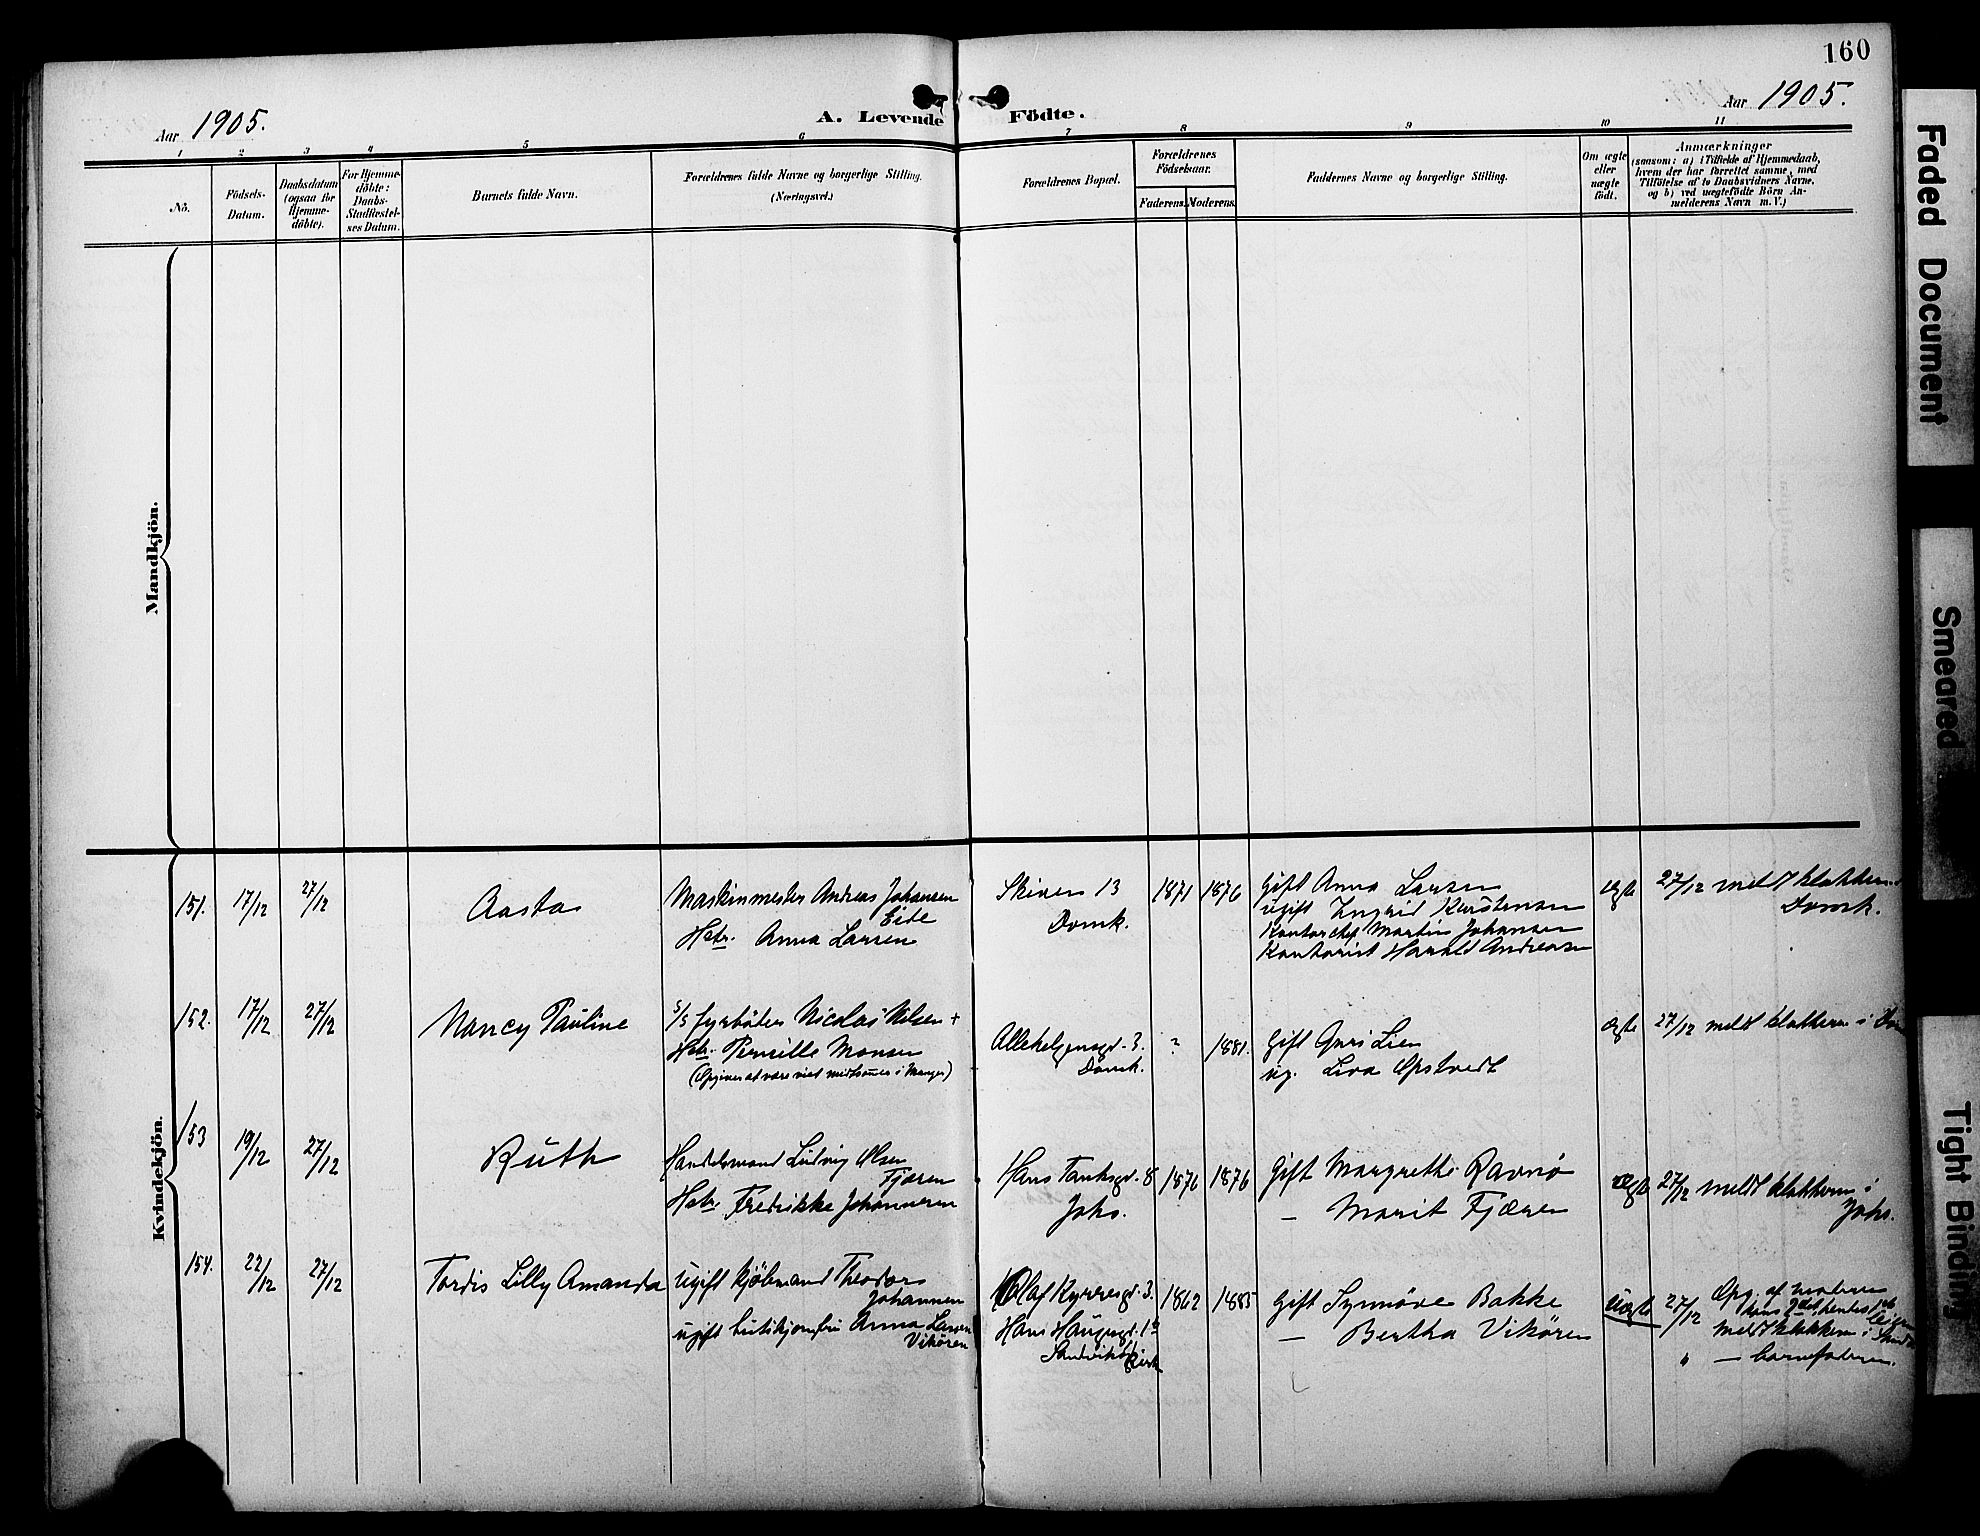 160
Aar 1905.
A. Levende Födte.
Aar 1905.
1 2 3 4 5 6 7 8 9 10 11
No.
Födsels-
Datum.
Daabsdatum
(ogsaa for
Hjemme-
döbte).
For Hjemme-
döbte:
Daabs-
Stadfæstel-
ses Datum.
Barnets fulde Navn.
Forældrenes fulde Navne og borgerlige Stilling.
(Næringsvei.)
Forældrenes Bopæl.
Forældrenes
Födselsaar.
Faderens. Moderens.
Faddernes Navne og borgerlige Stilling.
Om ægte
eller
uægte
født.
Anmærkninger
(saasom: a) i Tilfælde af Hjemmedaab,
hvem der har forrettet samme, med
Tilföielse af to Daabsvidners Navne,
og b) ved uægtefödte Börn An-
melderens Navn m. V.)
Mandkjön.
Kvindekjön.
151. 17/12 27/12
Aasta
Maskinmester Andreas Johansen
Eide
Hstr. Anna Larsen
Skiven 13
Domk.
1871 1876
Gift Anna Larsen
ugift Ingrid Karstensen
Kontorchef Martin Johansen
Kontorist Harald Andreasen
ægte
27/12 meldt klokkeren
Domk.
152. 17/12 27/12
Nancy Pauline
S/S fyrböter Nicolai Nilsen +
Hstr. Pernille Monsen
(Opgives at være viet midtsomer i Manger)
Allehelgensgd. 3.
Domk.
? 1881.
Gift Guri Lien
ug. Liva Opstvedt
ægte
27/12 meldt klokkeren i
153 19/12 27/12
Ruth
Handelsmand Ludvig Olsen
Fjæren
Hstr Fredrikke Johannesen
Hans Tanksgd. 8
Johs.
1876 1876
Gift Margrethe Ravnö
— Marit Fjæren
ægte
27/12 meldt klokkeren i
Johs.
154. 22/12 27/12
Tordis Lilly Amanda
ugift kjöbmand Theodor
Johannesen
ugift butikjomfru Anna Larsen
Vikören
Olaf Kyrresgd. 3.
Hans Haugesgd. 1
Sandvikskirk
1862 1885
Gift Synnöve Bakke
— Bertha Vikören
Uægte
27/12 Opg. af moderen
hans 2det hendes 1ste
meldt klokkeren i
" — barnefaderen.
Faded Document
Smeared
Tight Binding